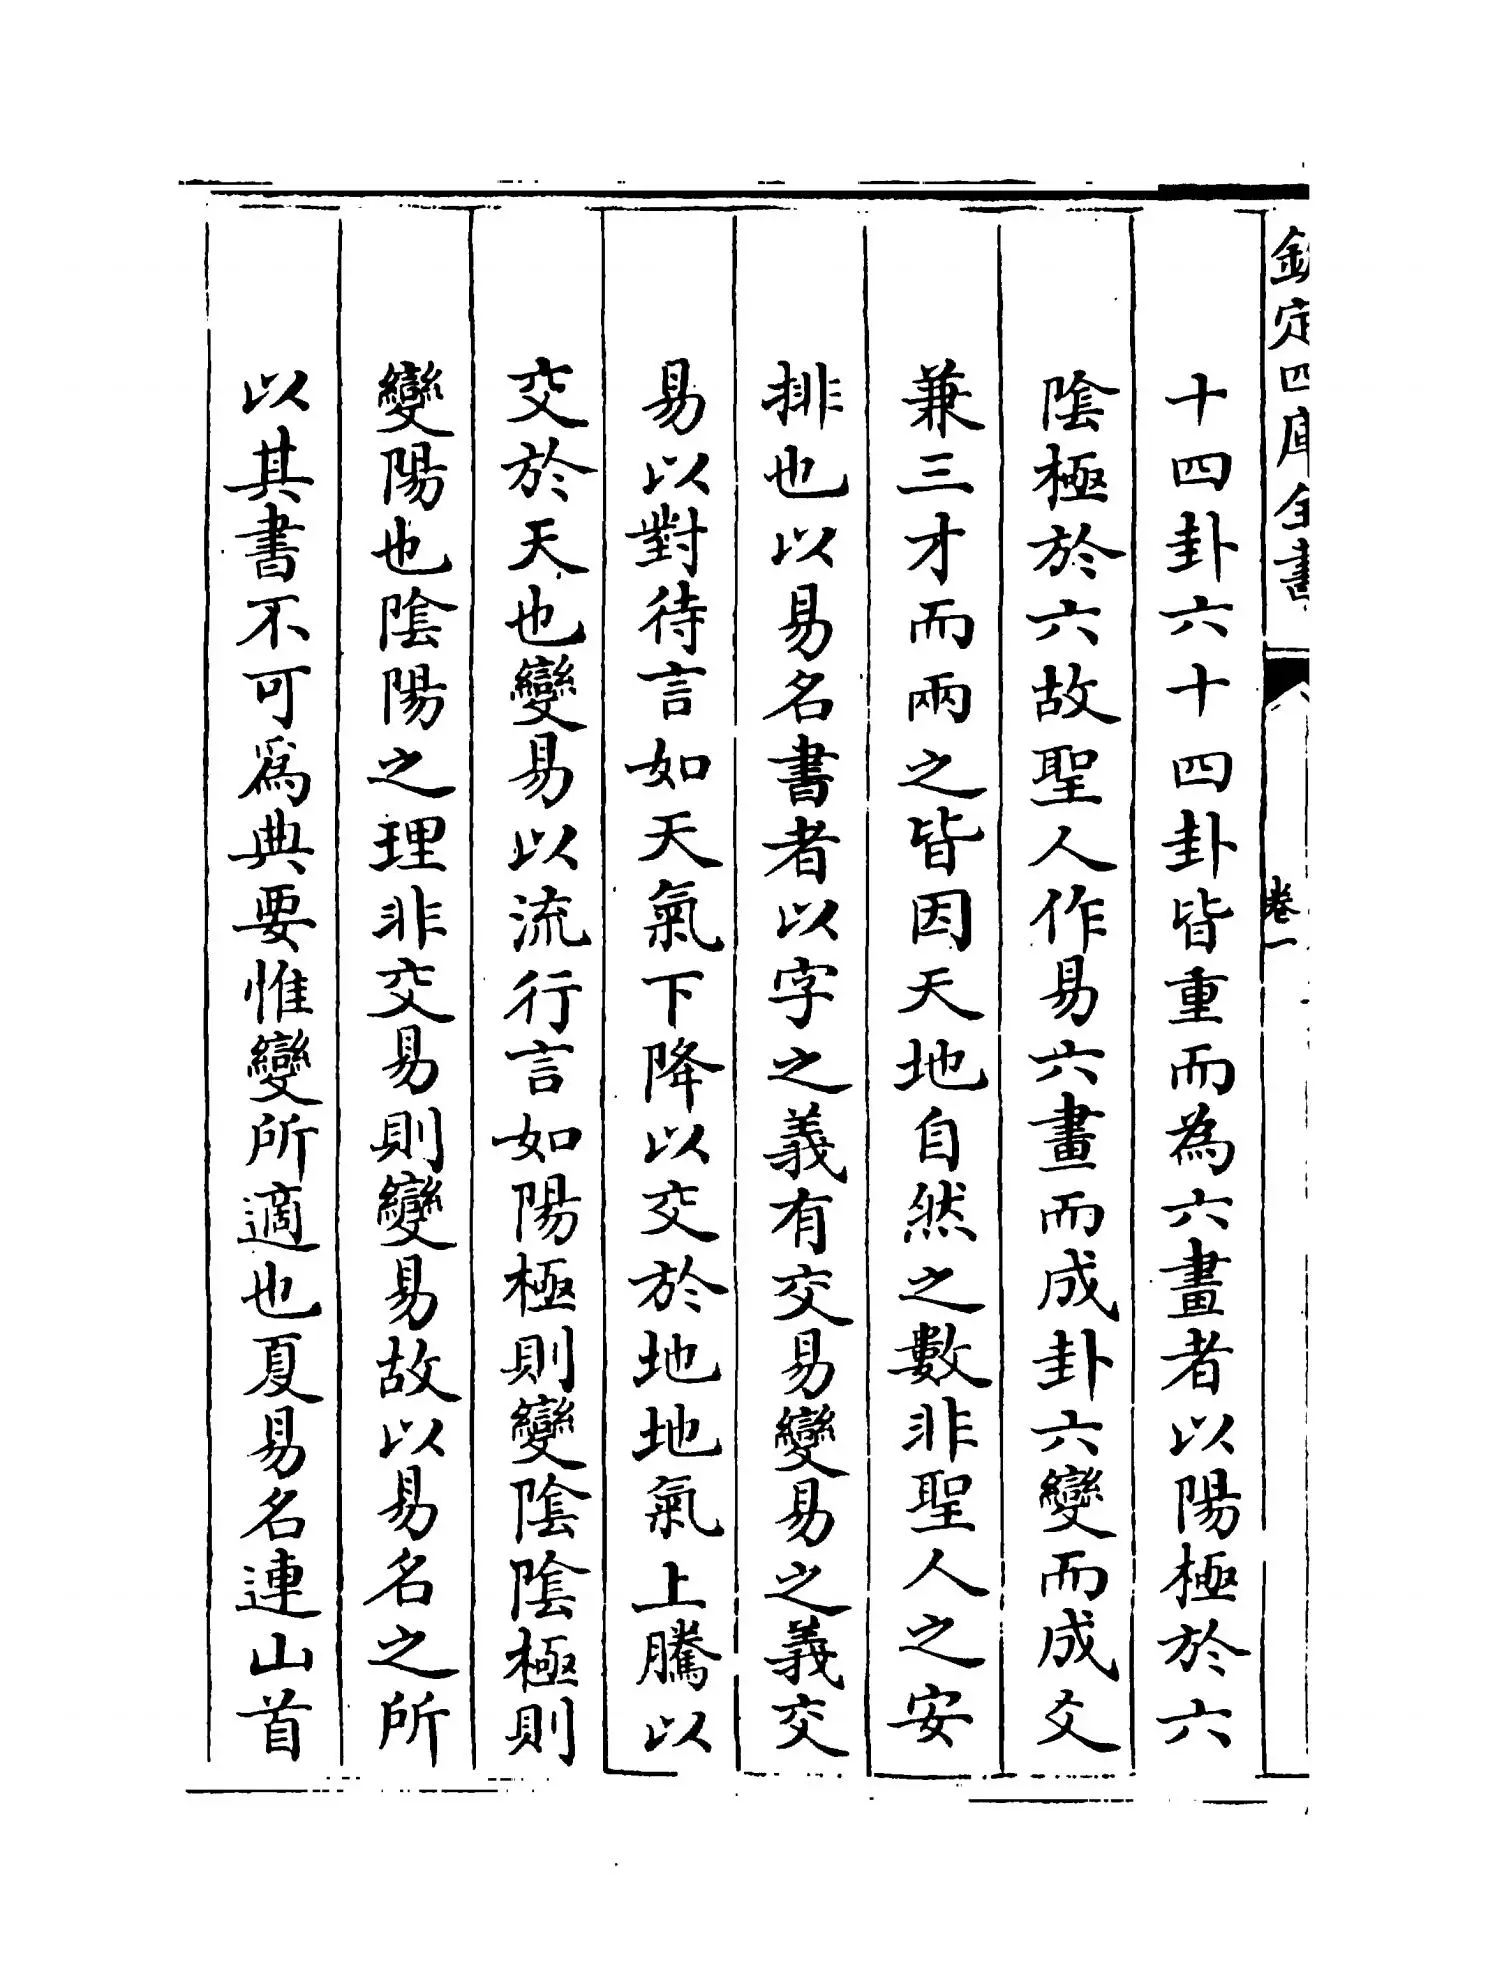 欽定四庫全書
卷一
十四卦六十四卦皆重而為六畫者以陽極於六
陰極於六故聖人作易六畫而成卦六變而成爻
兼三才而兩之皆因天地自然之數非聖人之安
排也以易名書者以字之義有交易變易之義交
易以對待言如天氣下降以交於地地氣上騰以
交於天也變易以流行言如陽極則變陰陰極則
變陽也陰陽之理非交易則變易故以易名之所
以其書不可爲典要惟變所適也夏易名連山首